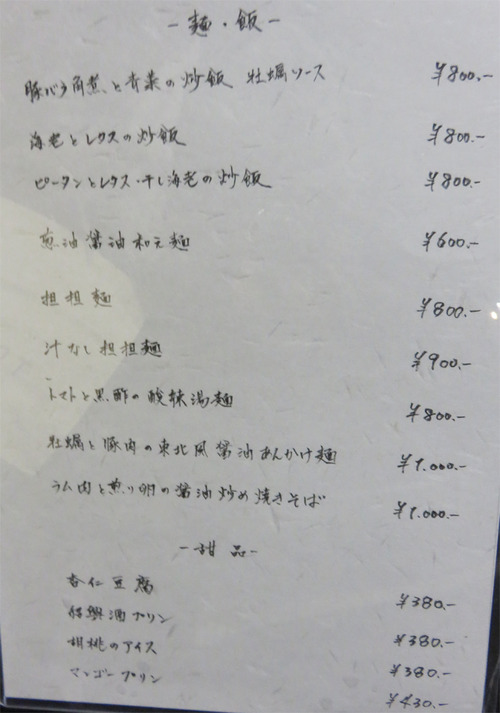 -麺・飯-
豚バラ角煮と青菜の炒飯 牡蠣ソース ¥800.-
海老とレタスの炒飯 ¥800.-
ピータンとレタス・干し海老の炒飯 ¥800.-
葱油醤油和え麺 ¥600.-
担担麺 ¥800.-
汁なし担担麺 ¥900.-
トマトと黒酢の酸辣湯麺 ¥800.-
牡蠣と豚肉の東北風醤油あんかけ麺 ¥1.000.-
ラム肉と煎り卵の醤油炒め焼きそば ¥1.000.-
-甜品-
杏仁豆腐 ¥380.-
紹興酒プリン ¥380.-
胡桃のアイス ¥380.-
マンゴープリン ¥430.-